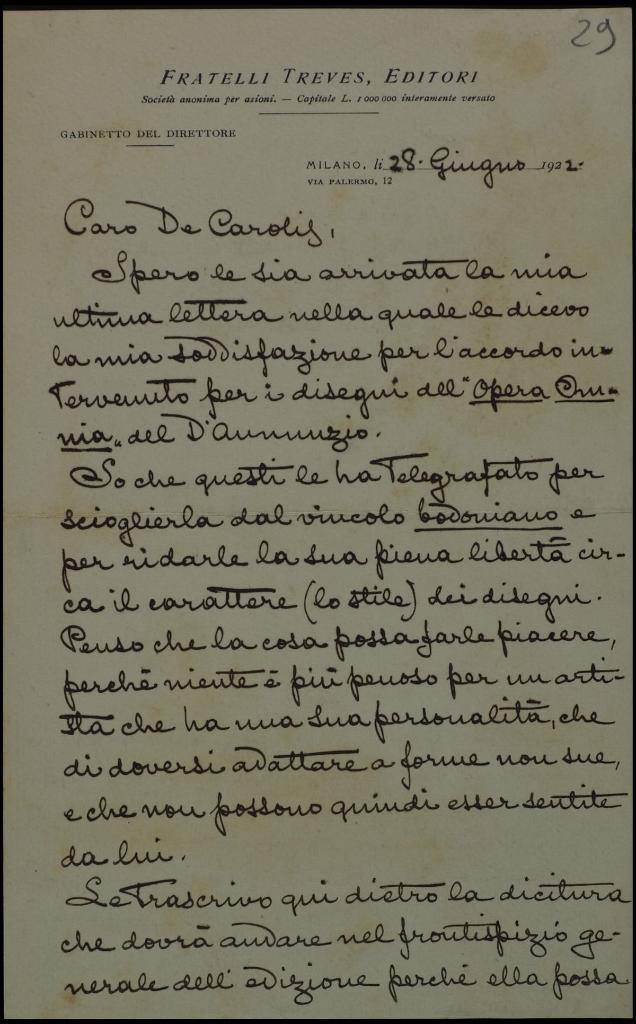 29
FRATELLI TREVES, EDITORI
Società anonima per azioni. — Capitale L. 1 000 000 interamente versato
GABINETTO DEL DIRETTORE
MILANO, li 28. Giugno 1922.
VIA PALERMO, 12
Caro De Carolis,
Spero le sia arrivata la mia
ultima lettera nella quale le dicevo
la mia soddisfazione per l'accordo in-
tervenuto per i disegni dell' "Opera Om-
nia" del D'Annunzio.
So che questi le ha telegrafato per
scioglierla dal vincolo bodoniano e
per ridarle la sua piena libertà cir-
ca il carattere (lo stile) dei disegni.
Penso che la cosa possa farle piacere,
perché niente è più penoso per un arti-
sta che ha una sua personalità, che
di doversi adattare a forme non sue,
e che non possono quindi esser sentite
da lui.
Le trascrivo qui dietro la dicitura
che dovrà andare nel frontispizio ge-
nerale dell' edizione perché ella possa